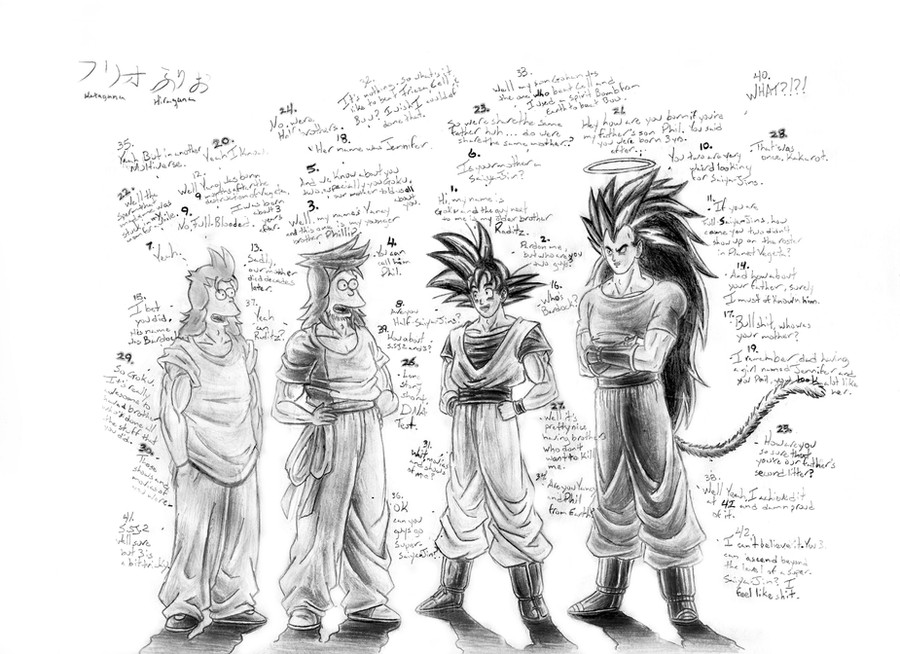 フリオ ふりお
Katagana Hiragana
35.
Yeah But in another
Multiverse.
20.
Yeah I Know.
24.
No, were
Half Brothers.
32.
It's nothing, so what's it
like to beat Frieza, Cell, &
Buu? I wish I would of
done that.
18.
Her name was Jennifer.
33.
Well my son Gohan, yes
was the one who beat Cell and
I used a Spirit Bomb from
Earth to beat Buu.
23.
So we're share the same
Father huh... do we
share the same mother?
21.
Hey how are you born if you're
my father's son Phil. You said
you were born 3 yrs.
after.
40.
WHAT?!?!
28.
That was
once, Kakarot.
10.
You two are very
weird looking
for SaiyaJins.
22.
Well the
12.
Well Yancy was born
I was born
about 3
years
after.
9.
No, Full-Blooded.
5.
And we know about you
two, especially you Goku,
our mother told us all
about
you.
3.
Well, my name's Yancy
and this one is my younger
brother Phillip.
6.
Is your mother a
SaiyaJin?
1.
Hi, my name is
Goku and the guy next
to me is my older brother
Raditz.
2.
Pardon me,
but who are you
two guys?
4.
You
can call
him
Phil.
7.
Yeah.
13.
Sadly,
our mother
died decades
later.
37.
Yeah
Raditz?
15.
I bet
you did.
His name
was Bardock.
8.
Are you
Half-SaiyaJins?
39.
How about
S.S.J. 2 and 3?
16.
Who's
Bardock?
11.
If you are
Full-SaiyaJins, how
come you two didn't
show up on the roster
in Planet Vegeta?
14.
And how about
your father, surely
I must of Known him.
17.
Bull shit, who was
your mother?
19.
I remember dad having
a girl named Jennifer and
you Phil, you took alot like
her.
29.
So Goku,
It is really
awesome to
have a brother
who's done all
the stuff that
you did.
26.
Long
story
short,
DNA
Test.
27.
Well it's
pretty nice
having brothers
who don't
want to kill
me.
25.
How are you
so sure that
you're our father's
second litter?
30.
Those
thousand
movies of
31.
What movies
of me?
34.
Are you Yancy
and Phil
from Earth?
36.
OK
can you
guys go
Super
SaiyaJin?
38.
Well Yeah, I achieved it
at 42 and damn proud
of it.
41.
S.S.J. 2
well sure
but 3 is
a bit tricky.
42.
I can't believe it. You 3
can ascend beyond
the level of a super
SaiyaJin? I
feel like shit.